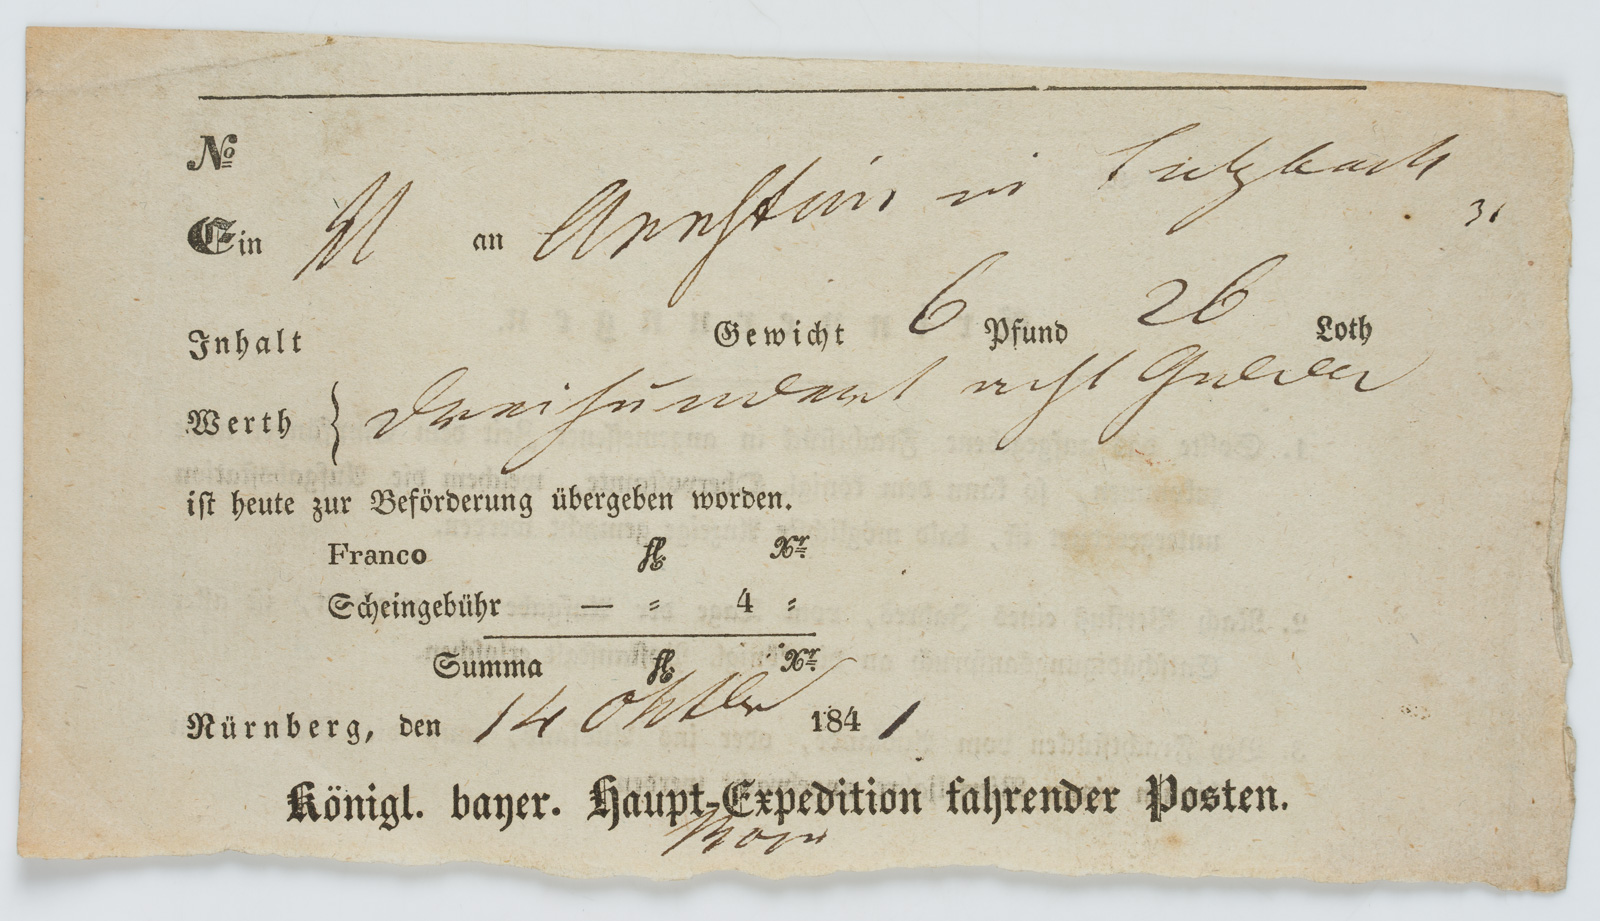 No
Ein an Arnstein in Sulzbach
31
Inhalt Gewicht 6 Pfund 26 Loth
Werth } dreihundert acht Gulden
ist heute zur Beförderung übergeben worden.
Franco fl Xr
Scheingebühr — = 4 =
Summa fl Xr
Nürnberg, den 14 Oktbr 1841
Königl. bayer. Haupt-Expedition fahrender Posten.